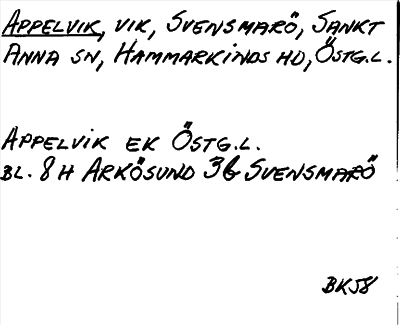 APPELVIK, VIK, SVENSMARÖ, SANKT
ANNA SN, HAMMARKINDS HD, ÖSTG.L.
APPELVIK EK ÖSTG.L.
BL. 8 H ARKÖSUND 3b SVENSMARÖ
BK58